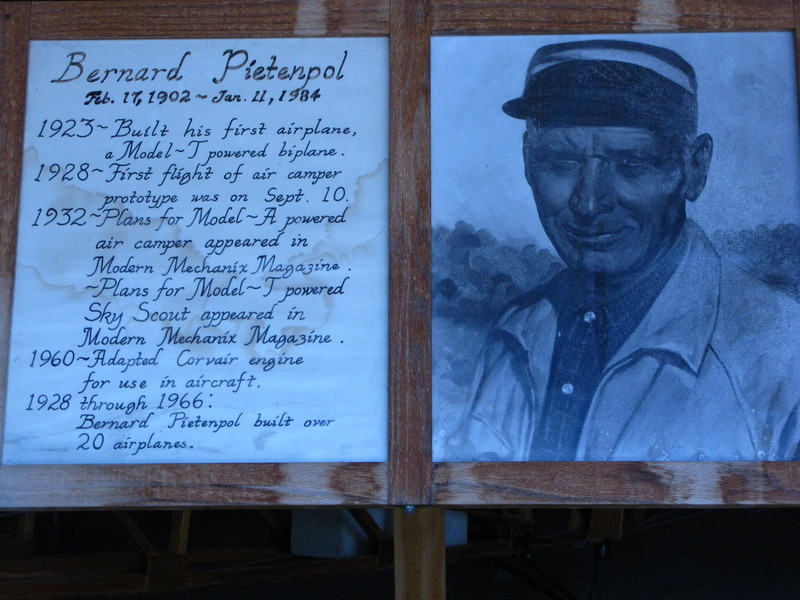 Bernard Pietenpol
Feb. 17, 1902 ~ Jan. 11, 1984
1923 ~ Built his first airplane,
a Model ~ T powered biplane.
1928 ~ First flight of air camper
prototype was on Sept. 10.
1932 ~ Plans for Model ~ A powered
air camper appeared in
Modern Mechanix Magazine.
~ Plans for Model ~ T powered
Sky Scout appeared in
Modern Mechanix Magazine.
1960 ~ Adapted Corvair engine
for use in aircraft.
1928 through 1966:
Bernard Pietenpol built over
20 airplanes.